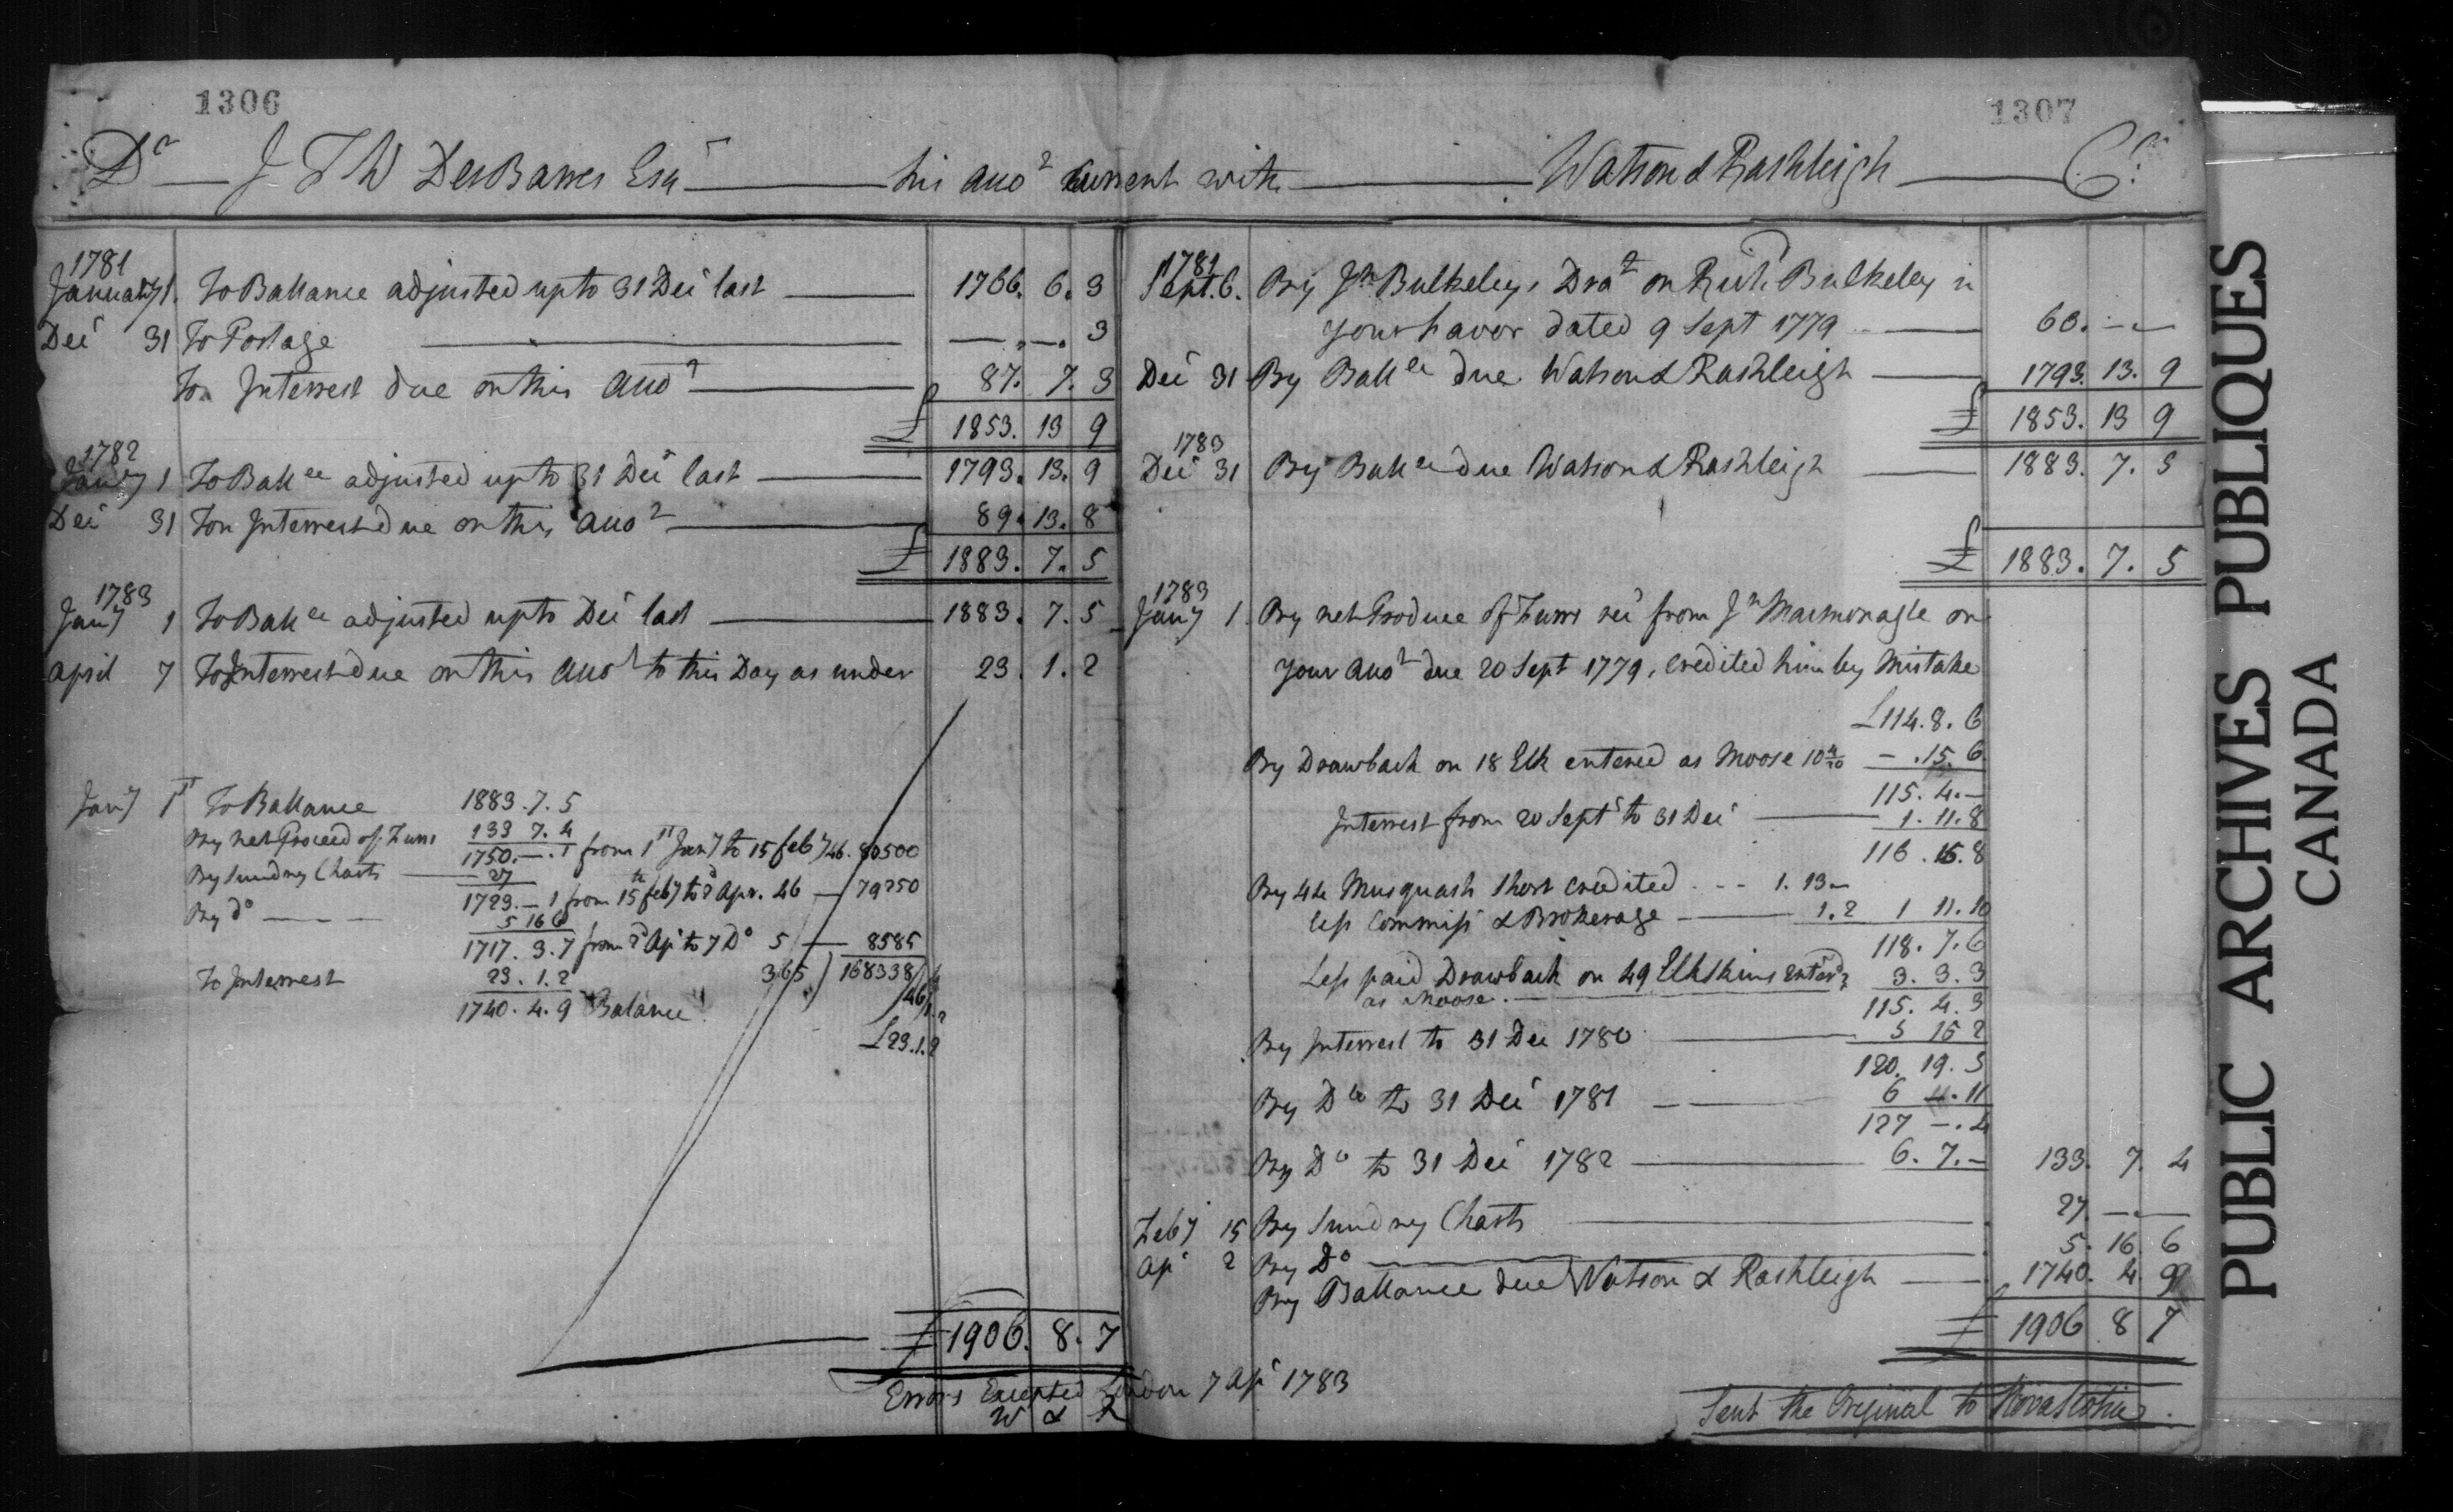 1306
1307
Dr J F W DesBarres Esqr his Acco^t Current with Watson & Rashleigh Cr.
1781
January 1. To Ballance adjusted up to 31 Dec last 1766. 6. 3
Dec 31 To Postage —. —. 3
To Interrest due on this Acco^t 87. 7. 3
£ 1853. 13 9
1782
Jany 1 To Balla^ce adjusted up to 31 Dec last 1793. 13. 9
Dec 31 To Interrest due on this Acco^t 89. 13. 8
£ 1883. 7. 5
1783
Jany 1 To Balla^ce adjusted up to Dec last 1883. 7. 5
April 7 To Interrest due on this Acco^t to this Day as under 23. 1. 2
Jany 1st To Ballance 1883. 7. 5
By net Proceed of Furrs 133 7. 4
1750. —. 1 from 1st Jany to 15 feby 46. 80500
By Sundry Charts 27
1723. — 1 from 15th feby to 2d Apr. 46 — 79250
By do 5 16 6
1717. 3. 7 from 2d Ap to 7 Do 5 — 8585
365) 168338
To Interrest 23. 1. 2
461
1740. 4. 9 Balance
£23. 1. 2
£ 1906. 8. 7
Errors Excepted London 7 Ap 1783
W & R
1781
Sept. 6. By Jn Bulkeleys Dra^t on Richd Bulkeley in
your favor dated 9 Sept 1779 60. — —
Dec 31 By Balla^ce due Watson & Rashleigh 1793. 13. 9
£ 1853. 13 9
1783
Dec 31 By Balla^ce due Watson & Rashleigh 1883. 7. 5
£ 1883. 7. 5
1783
Jany 1. By net Produce of Furrs rec from Jn Macmonagle on
your Acco^t due 20 Sept 1779, credited him by Mistake
£114. 8. 6
By Drawback on 18 Elk entered as Moose 10 4/10 — . 15. 6
115. 4. —
Interrest from 20 Sept to 31 Dec 1. 11. 8
116. 15. 8
By 44 Musquash short credited 1. 13 —
less Commiss & Brokerage 1. 2 1 11. 10
118. 7. 6
Less paid Drawback on 49 Elkskins enterd 3. 3. 3
as Moose.
115. 4. 3
By Interrest to 31 Dec 1780 5 15 2
120. 19. 5
By Do to 31 Dec 1781 6 —. 11
127 —. 4
By Do to 31 Dec 1782 6. 7. — 133. 7. 4
Feby 15 By Sundry Charts 27. — —
Ap 2 By Do 5. 16. 6
By Ballance due Watson & Rashleigh 1740. 4. 9
£ 1906 8 7
Sent the Original to Nova Scotia.
PUBLIC ARCHIVES PUBLIQUES
CANADA